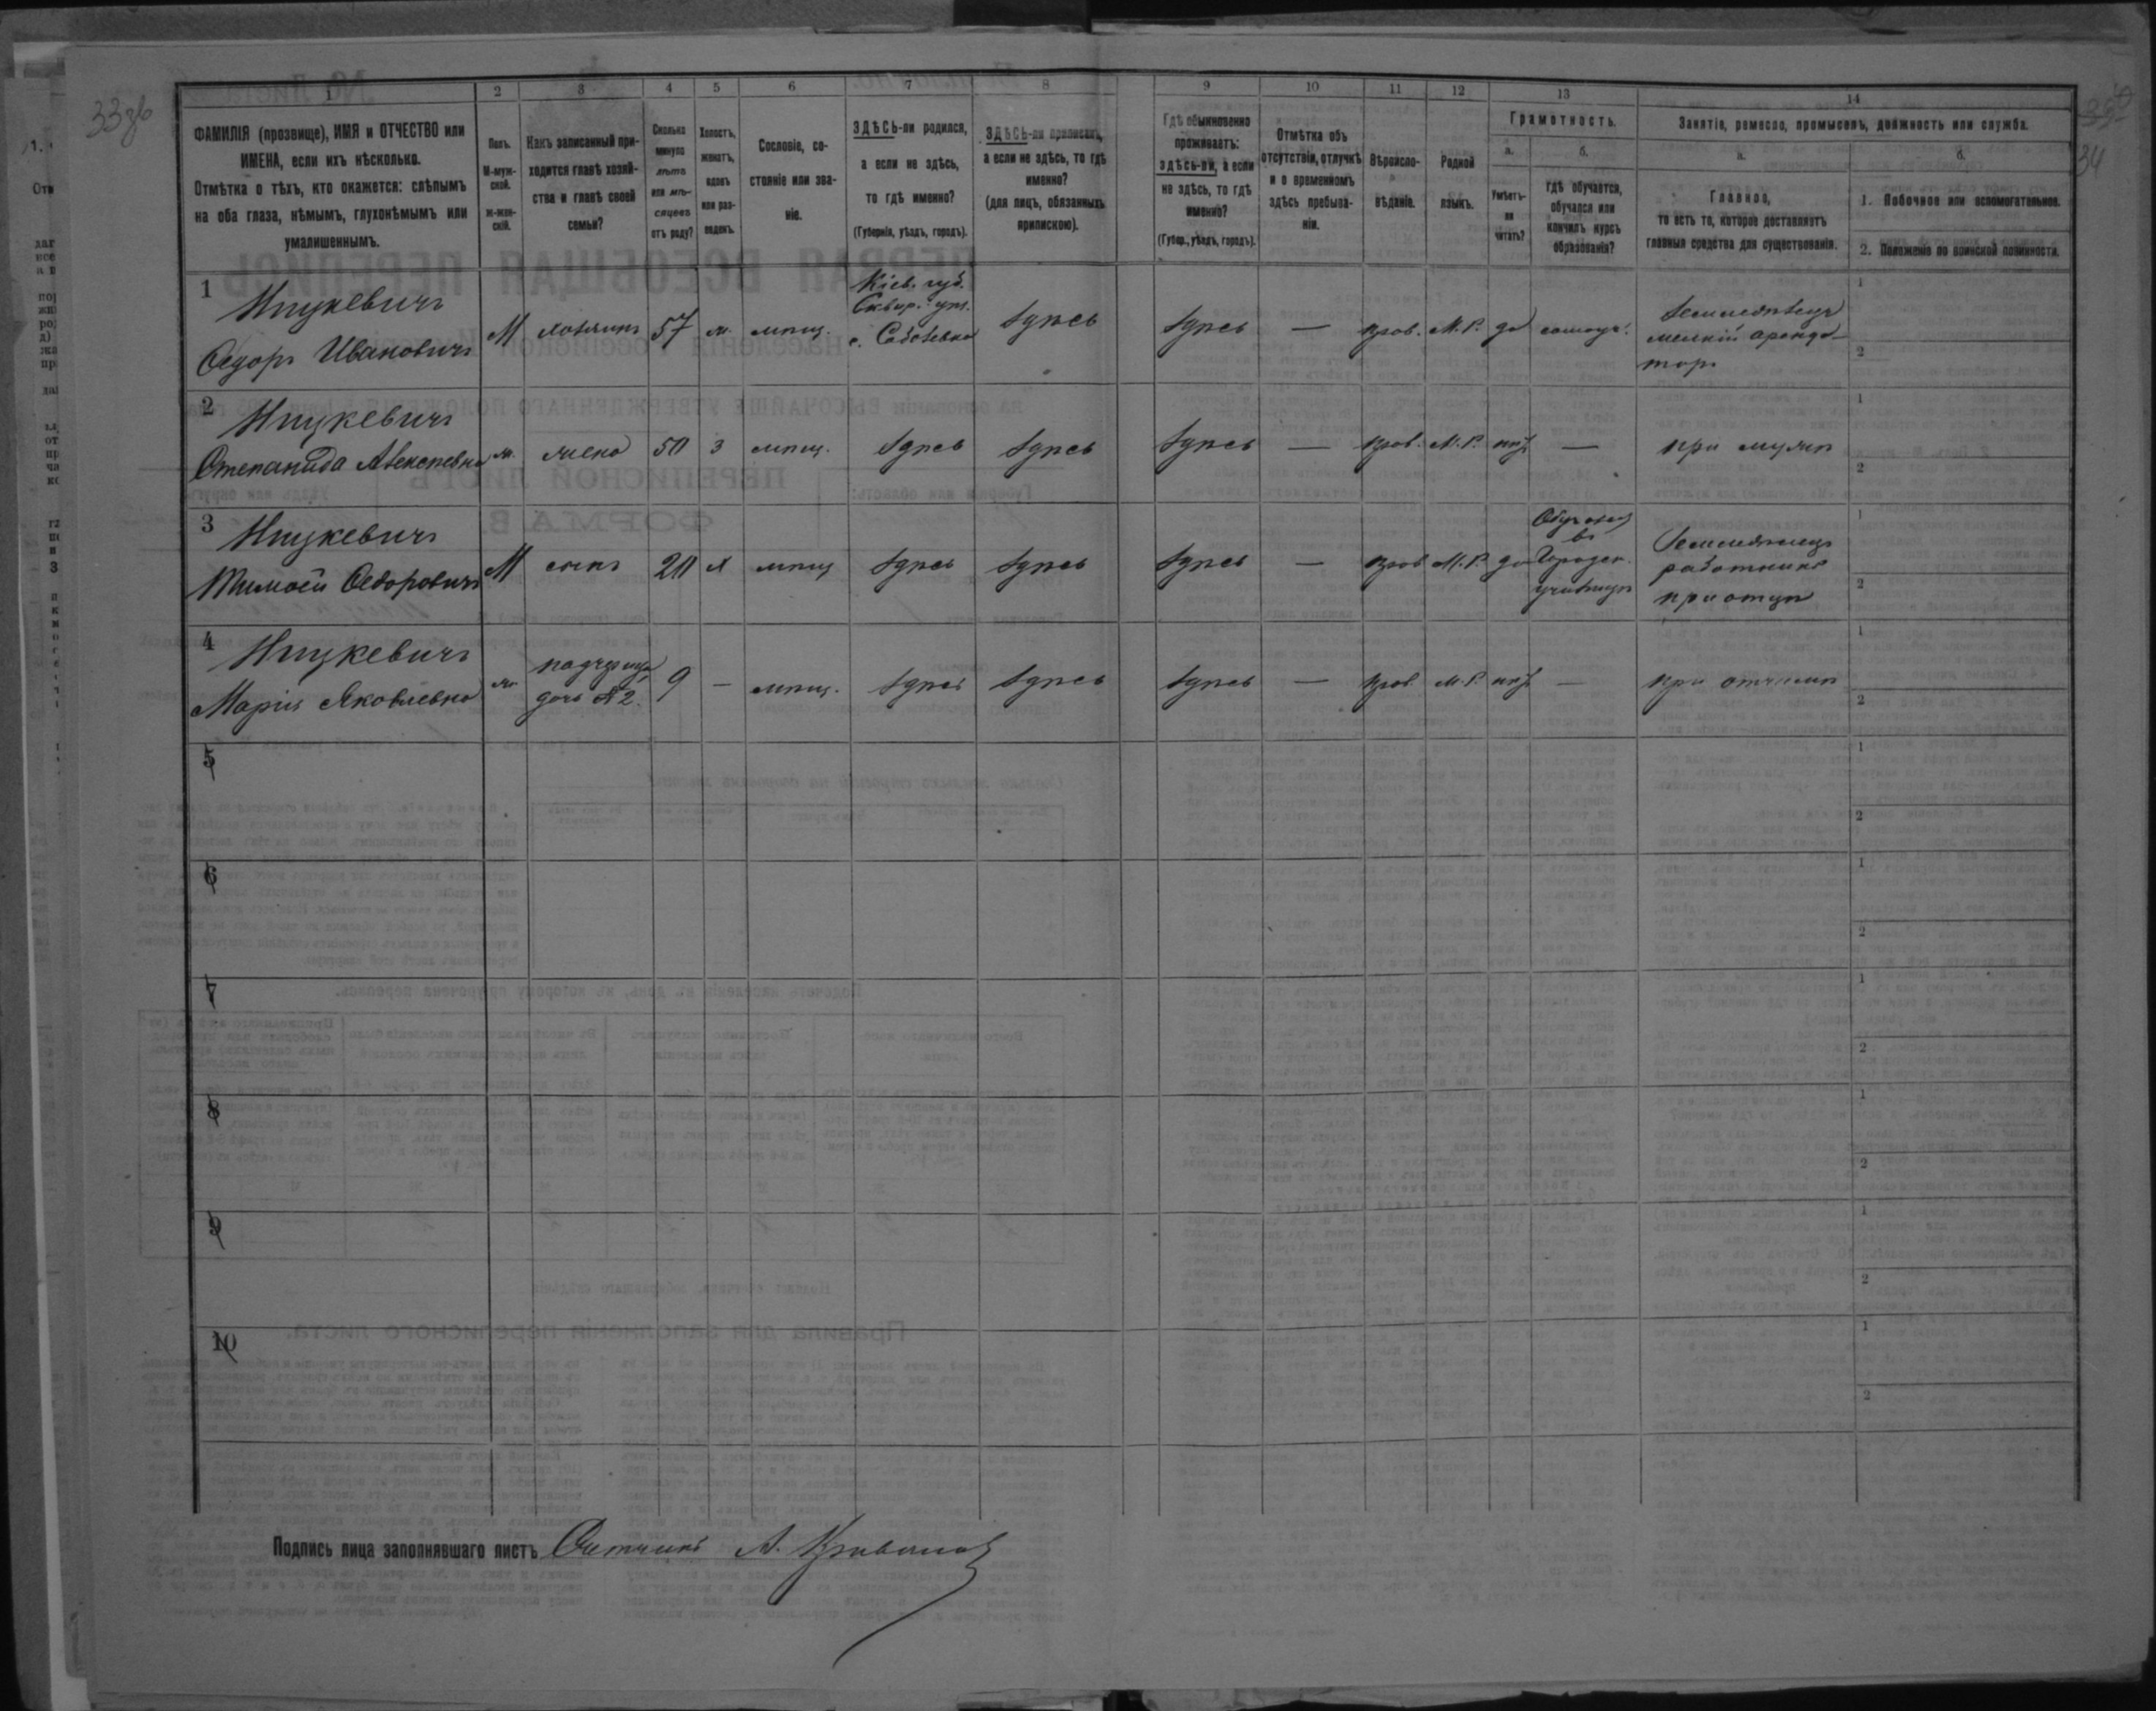 33об
34
1 2 3 4 5 6 7 8 9 10 11 12 13 14
ФАМИЛІЯ (прозвище), ИМЯ и ОТЧЕСТВО или
ИМЕНА, если ихъ нѣсколько.
Отмѣтка о тѣхъ, кто окажется: слѣпымъ
на оба глаза, нѣмымъ, глухонѣмымъ или
умалишеннымъ.
Полъ.
М-муж-
ской.
ж-жен-
скій.
Какъ записанный при-
ходится главѣ хозяй-
ства и главѣ своей
семьи?
Сколько
минуло
лѣтъ
или мѣ-
сяцевъ
отъ роду?
Холостъ,
женатъ,
вдовъ
или раз-
веденъ.
Сословіе, со-
стояніе или зва-
ніе.
ЗДѢСЬ-ли родился,
а если не здѣсь,
то гдѣ именно?
(Губернія, уѣздъ, городъ).
ЗДѢСЬ-ли приписанъ,
а если не здѣсь, то гдѣ
именно?
(для лицъ, обязанныхъ
припискою).
Гдѣ обыкновенно
проживаетъ:
здѣсь-ли, а если
не здѣсь, то гдѣ
именно?
(Губер., уѣздъ, городъ).
Отмѣтка объ
отсутствіи, отлучкѣ
и о временномъ
здѣсь пребыва-
ніи.
Вѣроиспо-
вѣданіе.
Родной
языкъ.
Грамотность.
а.
Умѣетъ-
ли
читать?
б.
гдѣ обучается,
обучался или
кончилъ курсъ
образованія?
Занятіе, ремесло, промыселъ, должность или служба.
а.
Главное,
то есть то, которое доставляетъ
главныя средства для существованія.
б.
1. Побочное или вспомогательное.
2. Положеніе по воинской повинности.
1
Ницкевичъ
Ѳедоръ Ивановичъ
М
хозяинъ
57
ж.
мѣщ.
Кіев. губ.
Сквир. уѣз.
здѣсь
здѣсь
—
прав.
М.Р.
да
самоуч.
земледѣлецъ
мелкій аренда-
торъ
1
2
2
Ницкевичъ
Степанида Алексѣевна
ж.
жена
50
з
мѣщ.
здѣсь
здѣсь
здѣсь
—
прав.
М.Р.
нѣт
—
при мужѣ
1
2
3
Ницкевичъ
Тимоѳей Ѳедоровичъ
М
сынъ
20
х
мѣщ
здѣсь
здѣсь
здѣсь
—
прав
М.Р.
да
въ
Городск.
училищѣ
Земледѣлецъ
работникъ
при отцѣ
1
2
4
Ницкевичъ
Марія Яковлевна
ж.
падчерица
дочь №2.
9
—
мѣщ.
здѣсь
здѣсь
здѣсь
—
прав.
М.Р.
нѣт
—
при отчимѣ
1
2
5
1
2
6
1
2
7
1
2
8
1
2
9
1
2
10
1
2
Подпись лица заполнявшаго листъ Счетчикъ А.